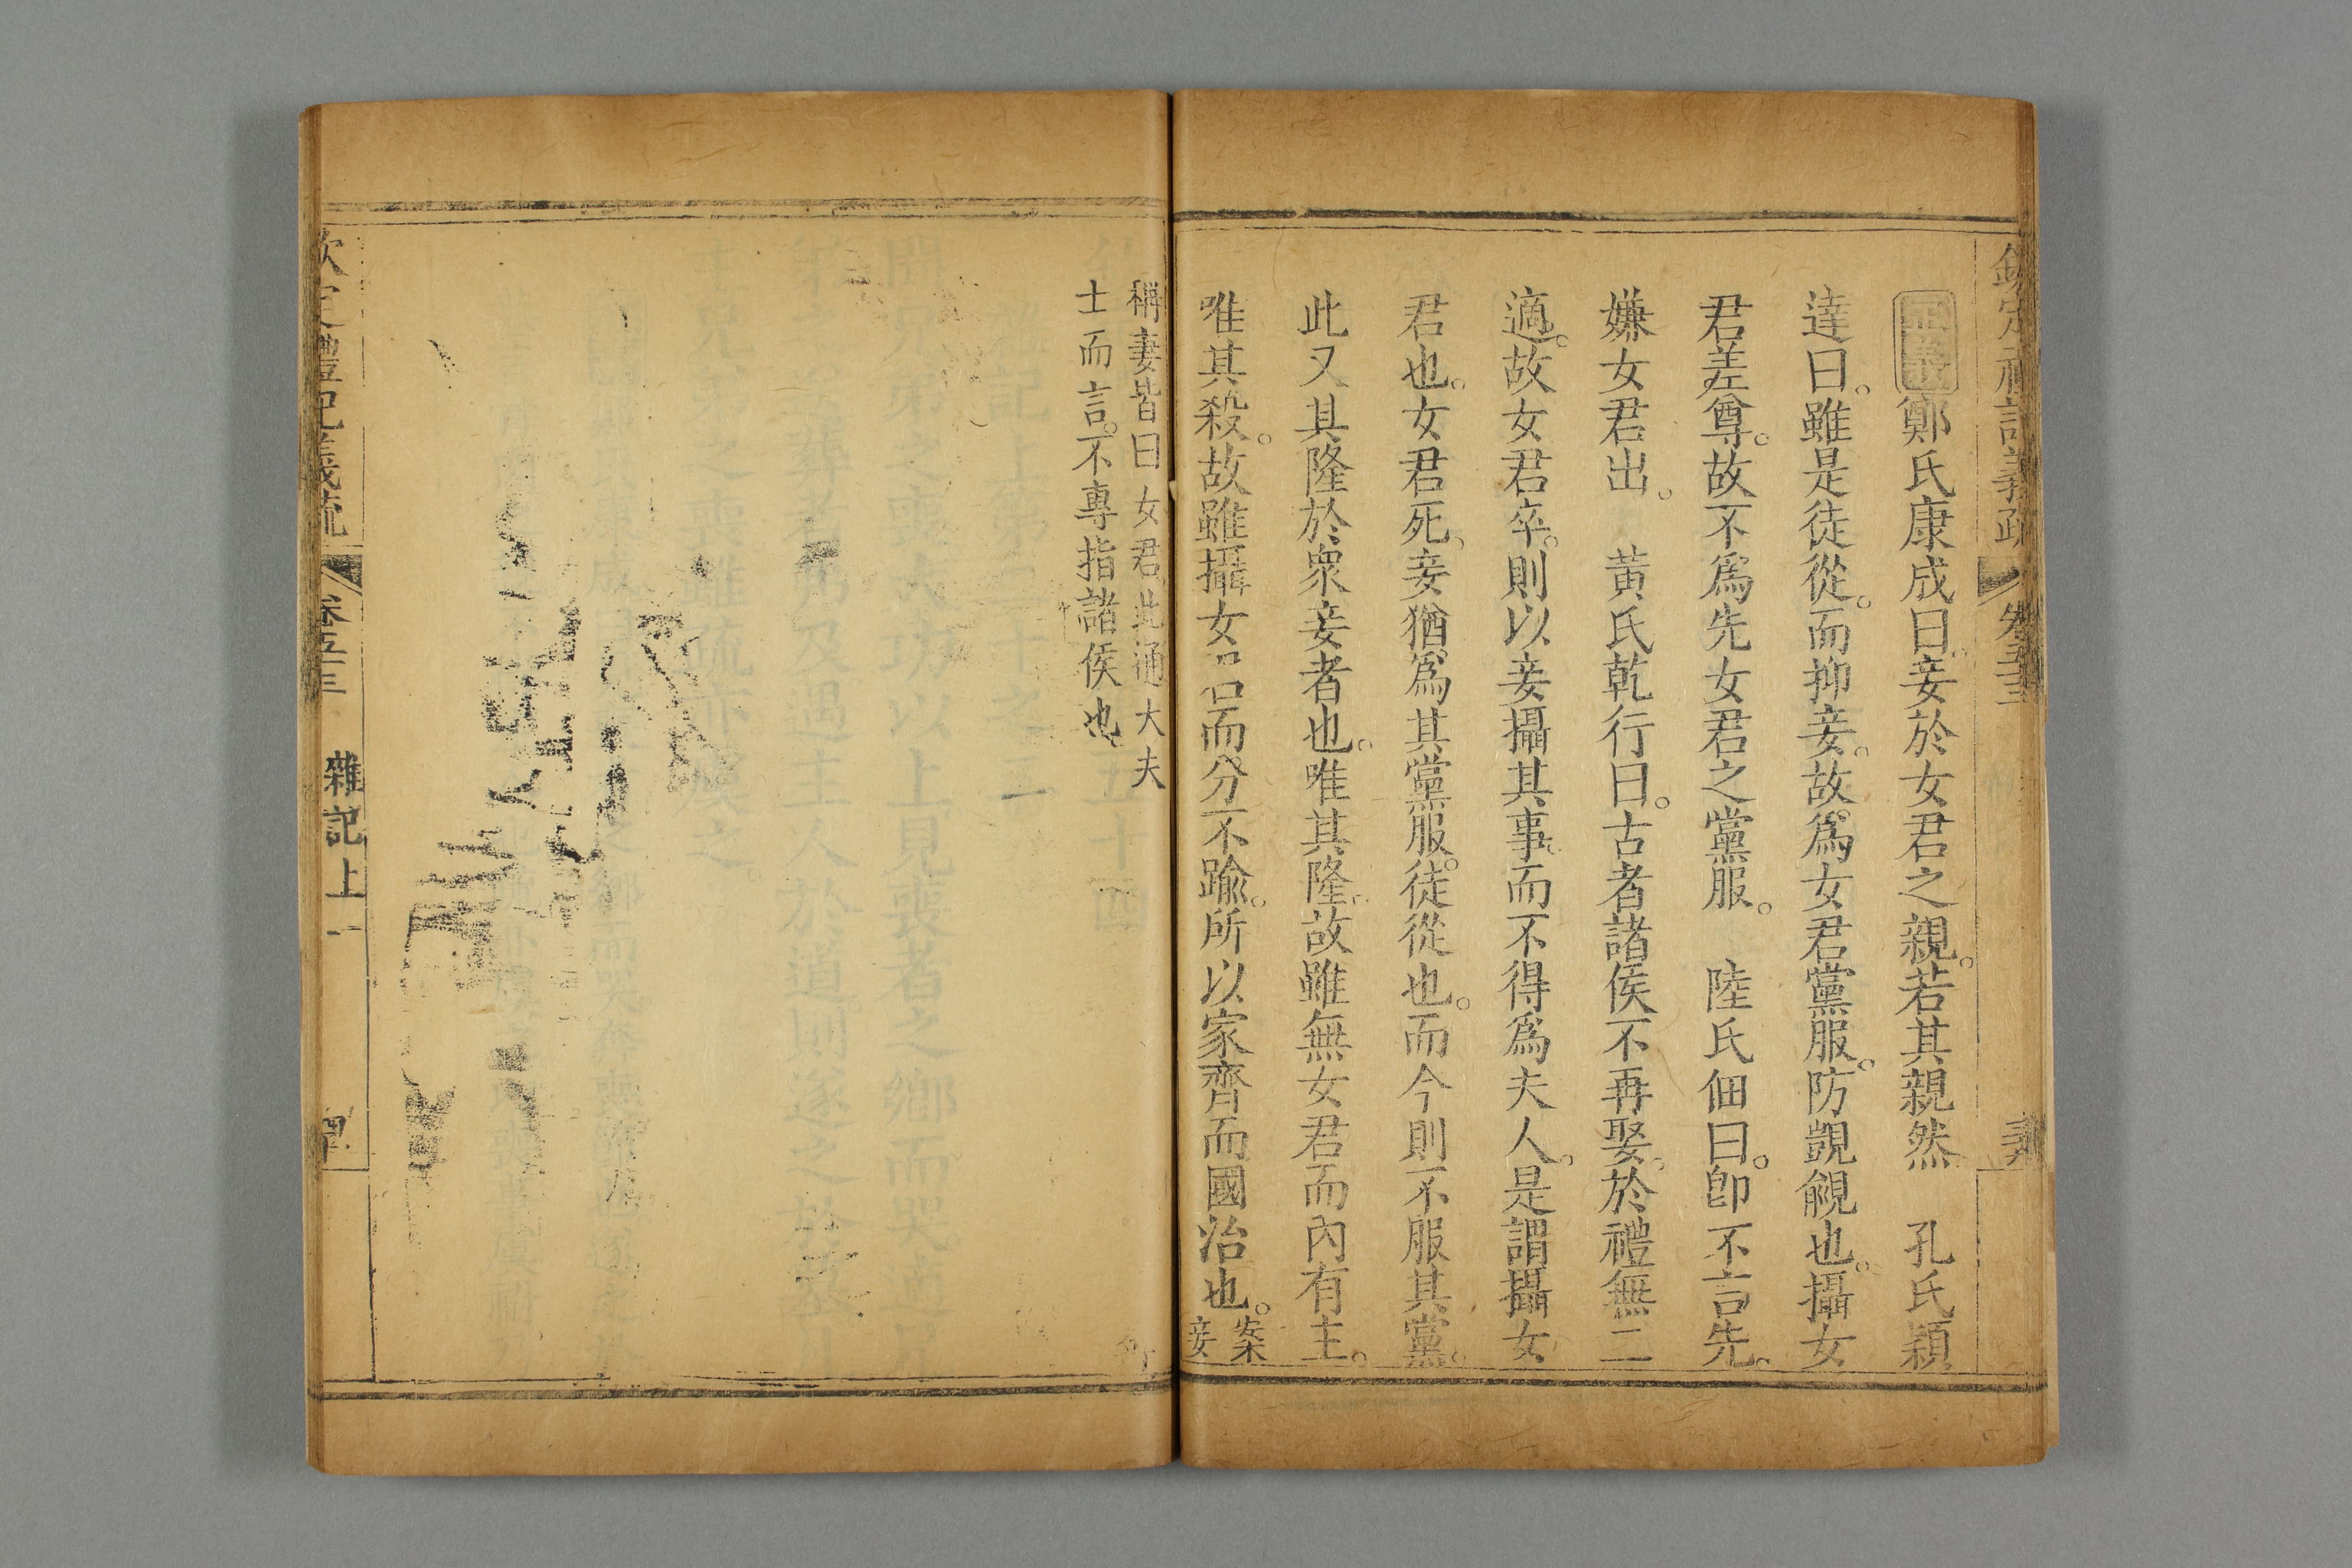 欽定禮記義疏 卷五十三
正義鄭氏康成曰妾於女君之親若其親然 孔氏穎
達曰雖是徒從而抑妾故爲女君黨服防覬覦也攝女
君差尊故不爲先女君之黨服 陸氏佃曰卽不言先
嫌女君出 黃氏乾行曰古者諸侯不再娶於禮無二
適故女君卒則以妾攝其事而不得爲夫人是謂攝女
君也女君死妾猶爲其黨服徒從也而今則不服其黨
此又其隆於衆妾者也唯其隆故雖無女君而內有主
唯其殺故雖攝女君而分不踰所以家齊而國治也案妾
稱妻皆曰女君此通大夫
士而言不專指諸侯也
欽定禮記義疏 卷五十三 雜記上